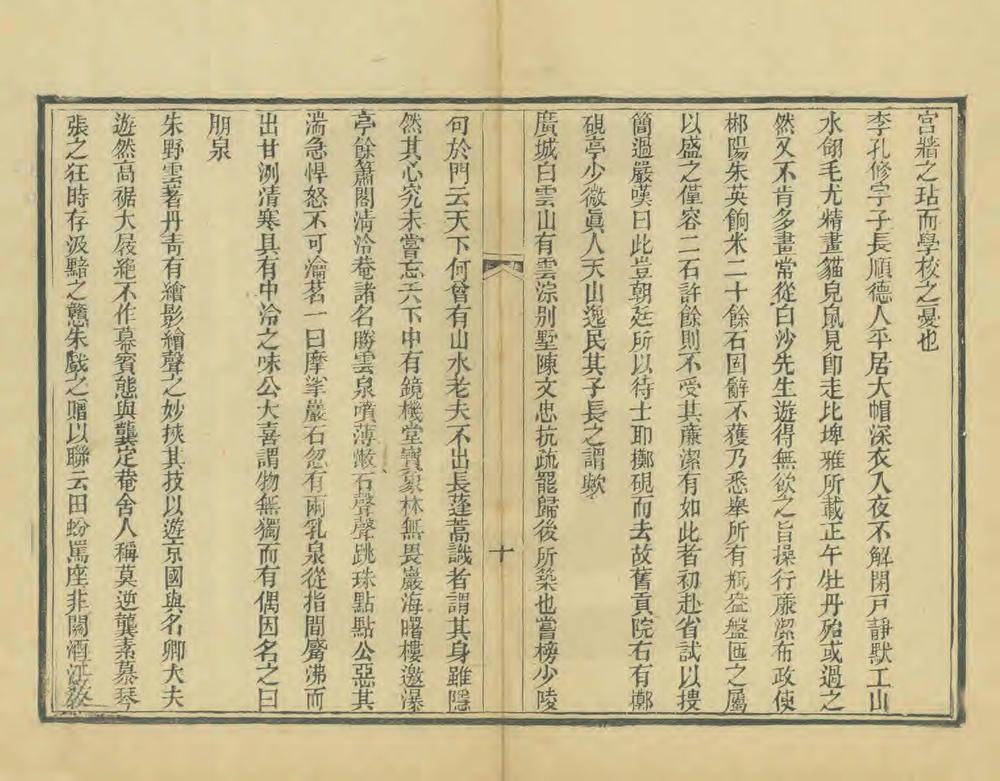 宮牆之玷而學校之憂也
李孔修字子長順德人平居大帽深衣入夜不解閉戶靜默工山
水翎毛尤精畫貓兒鼠見卽走比埤雅所載正午牡丹殆或過之
然又不肯多畫常從白沙先生遊得無欲之旨操行廉潔布政使
郴陽朱英餉米二十餘石固辭不獲乃悉舉所有瓶盎盤匜之屬
以盛之僅容二石許餘則不受其廉潔有如此者初赴省試以搜
簡過嚴嘆曰此豈朝廷所以待士耶擲硯而去故舊貢院右有擲
硯亭少微眞人天山逸民其子長之謂歟
廣城白雲山有雲淙别墅陳文忠抗疏罷歸後所築也嘗榜少陵
十
句於門云天下何曾有山水老夫不出長蓬蒿識者謂其身雖隱
然其心究未嘗忘天下中有鏡機堂寶象林無畏巖海曙樓邀瀑
亭餘簫閣清泠菴諸名勝雲泉噴薄漱石聲聲跳珠點點公惡其
湍急悍怒不可瀹茗一日摩挲巖石忽有兩乳泉從指間觱沸而
出甘洌清寒具有中泠之味公大喜謂物無獨而有偶因名之曰
朋泉
朱野雲著丹靑有繪影繪聲之妙挾其技以遊京國與名卿大夫
遊然高裾大屐絕不作幕賓態與龔定菴舍人稱莫逆龔素慕琴
張之狂時存汲黯之戇朱戲之贈以聯云田蚡罵座非關酒江敩